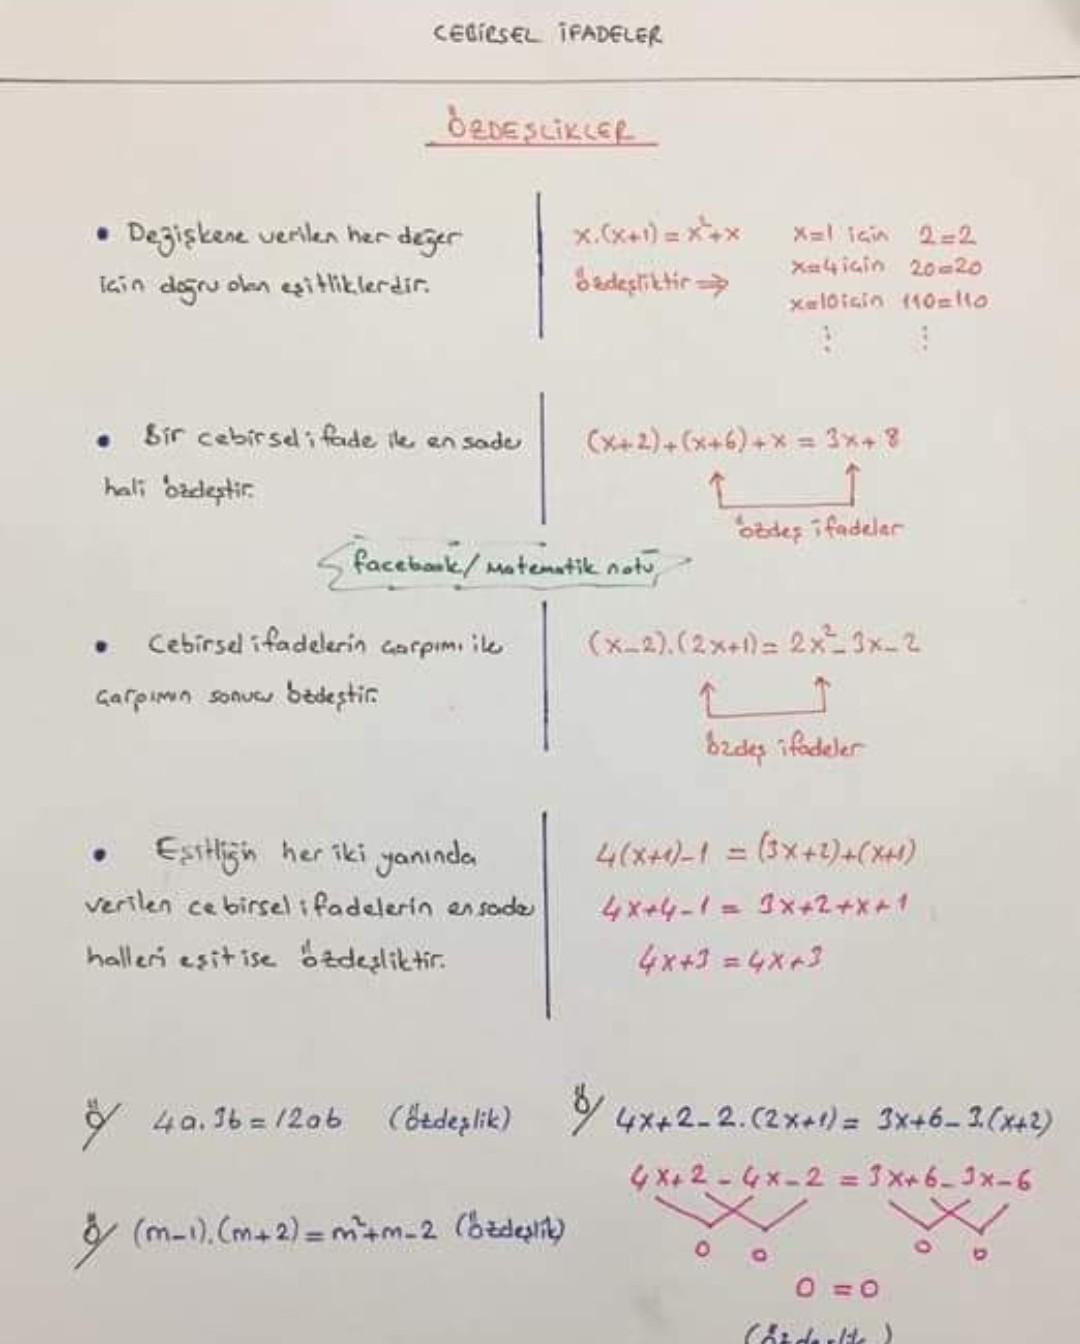 CEBİRSEL İFADELER
ÖZDEŞLİKLER
• Değişkene verilen her değer
için doğru olan eşitliklerdir.
x.(x+1) = x²+x
özdeşliktir ⇒
x=1 için 2=2
x=4 için 20=20
x=10 için 110=110
⋮ ⋮
• Bir cebirsel ifade ile en sade
hali özdeştir.
(x+2)+(x+6)+x = 3x+8
özdeş ifadeler
facebook/ Matematik notu
• Cebirsel ifadelerin çarpımı ile
çarpımın sonucu özdeştir.
(x-2).(2x+1) = 2x²-3x-2
özdeş ifadeler
• Eşitliğin her iki yanında
verilen cebirsel ifadelerin en sade
halleri eşit ise özdeşliktir.
4(x+1)-1 = (3x+2)+(x+1)
4x+4-1 = 3x+2+x+1
4x+3 = 4x+3
Ö/ 4a.3b = 12ab (özdeşlik)
Ö/ (m-1).(m+2) = m²+m-2 (özdeşlik)
Ö/ 4x+2-2.(2x+1) = 3x+6-3.(x+2)
4x+2-4x-2 = 3x+6-3x-6
0 0 0 0
0 = 0
(özdeşlik)